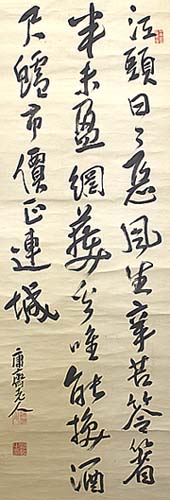 江頭日々惡風生辛苦笭箵
半未盈網唯能換酒
尺鱸市價正連城
庸齋老人